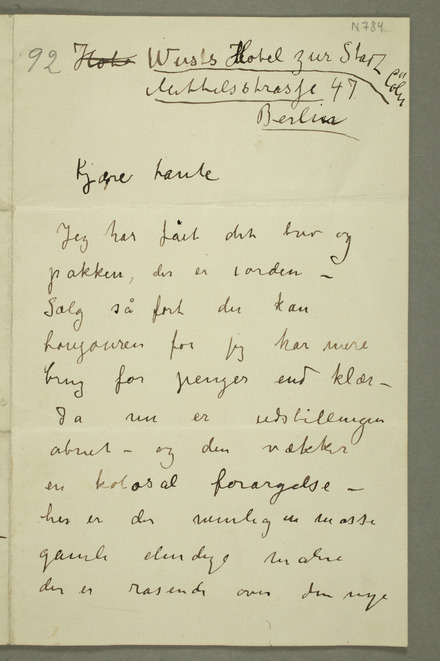 N 784
92 Hotel Wusts Hotel zur Stadt Cöln
Mittelsstrasse 47
Berlin
Kjære tante
Jeg har fået dit brev og
pakken, der er iorden –
Sælg så fort du kan
houyouren for jeg har mere
brug for penger end klær –
Ja nu er udstillingen
åbnet – og den vækker
en kolosal forargelse –
her er der nemlig en masse
gamle elendige malere
der er rasende over den nye